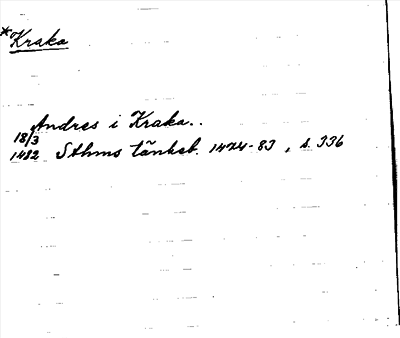 *Kraka
Andres i Kraka..
18/3
1482 Sthms tänkeb. 1474-83, s. 336